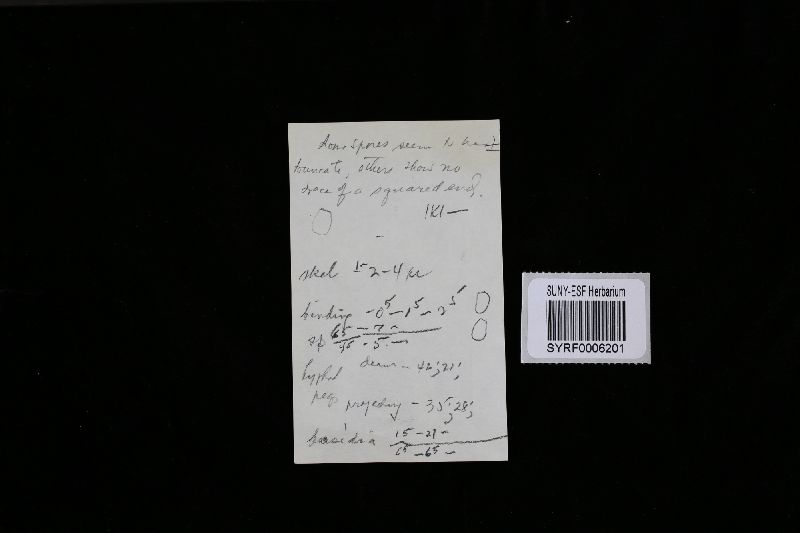 Some spores seem to be ±
truncate, others show no
trace of a squared end.
IKI —
skel 1⁵ 2-4 µ
binding - 0⁵ - 1⁵ - 2⁵
sp 6⁵ - 7 -
4⁵ - 5 -
hyphal
pegs projecting - 35; 28;
basidia 15 - 21 -
- 6⁵ -
SUNY-ESF Herbarium
SYRF0006201